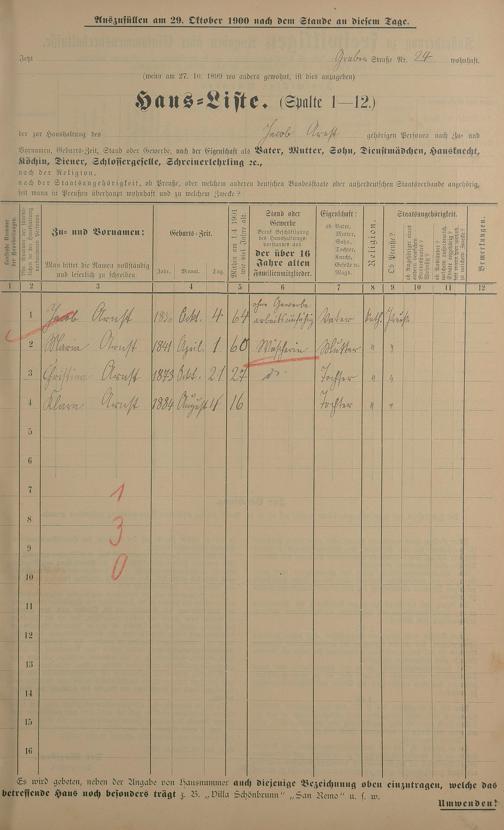 Auszufüllen am 29. Oktober 1900 nach dem Stande an diesem Tage.
Jetzt Graben Straße Nr. 24 wohnhaft.
(wenn am 27. 10. 1899 wo anders gewohnt, ist dies anzugeben)
Haus-Liste. (Spalte 1—12.)
der zur Haushaltung des Jacob Arnst gehörigen Personen nach Zu- und
Vornamen, Geburts-Zeit, Stand oder Gewerbe, nach der Eigenschaft als Vater, Mutter, Sohn, Dienstmädchen, Hausknecht,
Köchin, Diener, Schlossergeselle, Schreinerlehrling ꝛc.,
nach der Religion,
nach der Staatsangehörigkeit, ob Preuße, oder welchem anderen deutschen Bundesstaate oder außerdeutschen Staatsverbande angehörig,
seit wann in Preußen überhaupt wohnhaft und zu welchem Zwecke?
Zu- und Vornamen:
Man bittet die Namen vollständig
und leserlich zu schreiben
Geburts-Zeit.
Jahr. Monat. Tag.
Mithin am 1. 4. 1901
wie viel Jahre alt.
Stand oder
Gewerbe
der über 16
Jahre alten
Familienmitglieder.
Eigenschaft:
ob Vater,
Mutter,
Sohn,
Tochter,
Knecht,
Magd.
Religion.
Staatsangehörigkeit.
Ob Preuße?
Bemerkungen.
1 2 3 4 5 6 7 8 9 10 11 12
1 Jacob Arnst Okt. 4 64 ohne Gewerbe arbeitsunfähig Vater kath. Preuße
2 Maria Arnst 1841 April 1 60 Wäscherin Mutter " "
3 Christina Arnst 1873 Okt. 21 27 do. Tochter " "
4 Klara Arnst 1884 August 4 16 Tochter " "
5
6
7 1
8 3
9 0
10
11
12
13
14
15
16
Es wird gebeten, neben der Angabe von Hausnummer auch diejenige Bezeichnung oben einzutragen, welche das
betreffende Haus noch besonders trägt z. B. „Villa Schönbrunn" „San Remo" u. s. w.
Umwenden!